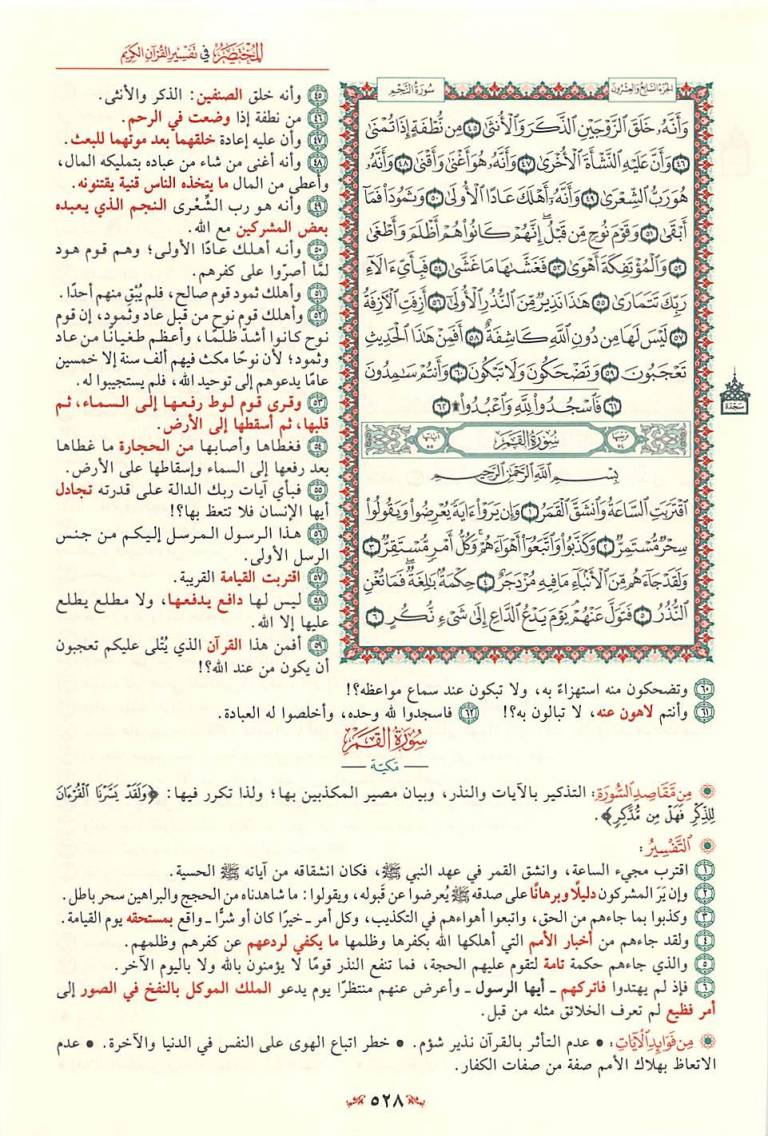 المختصر في تفسير القرآن الكريم
الجزء السابع والعشرون
سورة النجم
وَأَنَّهُۥ خَلَقَ ٱلزَّوۡجَيۡنِ ٱلذَّكَرَ وَٱلۡأُنثَىٰ ٤٥ مِن نُّطۡفَةٍ إِذَا تُمۡنَىٰ
٤٦ وَأَنَّ عَلَيۡهِ ٱلنَّشۡأَةَ ٱلۡأُخۡرَىٰ ٤٧ وَأَنَّهُۥ هُوَ أَغۡنَىٰ وَأَقۡنَىٰ ٤٨ وَأَنَّهُۥ
هُوَ رَبُّ ٱلشِّعۡرَىٰ ٤٩ وَأَنَّهُۥٓ أَهۡلَكَ عَادًا ٱلۡأُولَىٰ ٥٠ وَثَمُودَاْ فَمَآ
أَبۡقَىٰ ٥١ وَقَوۡمَ نُوحٖ مِّن قَبۡلُۖ إِنَّهُمۡ كَانُواْ هُمۡ أَظۡلَمَ وَأَطۡغَىٰ
٥٢ وَٱلۡمُؤۡتَفِكَةَ أَهۡوَىٰ ٥٣ فَغَشَّىٰهَا مَا غَشَّىٰ ٥٤ فَبِأَيِّ ءَالَآءِ
رَبِّكَ تَتَمَارَىٰ ٥٥ هَٰذَا نَذِيرٞ مِّنَ ٱلنُّذُرِ ٱلۡأُولَىٰٓ ٥٦ أَزِفَتِ ٱلۡأٓزِفَةُ
٥٧ لَيۡسَ لَهَا مِن دُونِ ٱللَّهِ كَاشِفَةٌ ٥٨ أَفَمِنۡ هَٰذَا ٱلۡحَدِيثِ
تَعۡجَبُونَ ٥٩ وَتَضۡحَكُونَ وَلَا تَبۡكُونَ ٦٠ وَأَنتُمۡ سَٰمِدُونَ
٦١ فَٱسۡجُدُواْۤ لِلَّهِۤ وَٱعۡبُدُواْ ۩ ٦٢
سجدة
ترتيبها ٥٤ سورة القمر آياتها ٥٥
بِسۡمِ ٱللَّهِ ٱلرَّحۡمَٰنِ ٱلرَّحِيمِ
ٱقۡتَرَبَتِ ٱلسَّاعَةُ وَٱنشَقَّ ٱلۡقَمَرُ ١ وَإِن يَرَوۡاْ ءَايَةٗ يُعۡرِضُواْ وَيَقُولُواْ
سِحۡرٞ مُّسۡتَمِرّٞ ٢ وَكَذَّبُواْ وَٱتَّبَعُوٓاْ أَهۡوَآءَهُمۡۚ وَكُلُّ أَمۡرٖ مُّسۡتَقِرّٞ ٣
وَلَقَدۡ جَآءَهُم مِّنَ ٱلۡأَنۢبَآءِ مَا فِيهِ مُزۡدَجَرٌ ٤ حِكۡمَةُۢ بَٰلِغَةٞۖ فَمَا تُغۡنِ
ٱلنُّذُرُ ٥ فَتَوَلَّ عَنۡهُمۡۘ يَوۡمَ يَدۡعُ ٱلدَّاعِ إِلَىٰ شَيۡءٖ نُّكُرٍ ٦
٤٥ وأنه خلق الصنفين: الذكر والأنثى.
٤٦ من نطفة إذا وضعت في الرحم.
٤٧ وأن عليه إعادة خلقهما بعد موتهما للبعث.
٤٨ وأنه أغنى من شاء من عباده بتمليكه المال،
وأعطى من المال ما يتخذه الناس قنية يقتنونه.
٤٩ وأنه هو رب الشِّعْرى النجم الذي يعبده
بعض المشركين مع الله.
٥٠ وأنه أهلك عادًا الأولى؛ وهم قوم هود
لمَّا أصرّوا على كفرهم.
٥١ وأهلك ثمود قوم صالح، فلم يُبْقِ منهم أحدًا.
٥٢ وأهلك قوم نوح من قبل عاد وثمود، إن قوم
نوح كانوا أشدّ ظلمًا، وأعظم طغيانًا من عاد
وثمود؛ لأن نوحًا مكث فيهم ألف سنة إلا خمسين
عامًا يدعوهم إلى توحيد الله، فلم يستجيبوا له.
٥٣ وقرى قوم لوط رفعها إلى السماء، ثم
قلبها، ثم أسقطها إلى الأرض.
٥٤ فغطاها وأصابها من الحجارة ما غطاها
بعد رفعها إلى السماء وإسقاطها على الأرض.
٥٥ فبأي آيات ربك الدالة على قدرته تجادل
أيها الإنسان فلا تتعظ بها؟!
٥٦ هذا الرسول المرسل إليكم من جنس
الرسل الأولى.
٥٧ اقتربت القيامة القريبة.
٥٨ ليس لها دافع يدفعها، ولا مطلع يطلع
عليها إلا الله.
٥٩ أفمن هذا القرآن الذي يُتْلى عليكم تعجبون
أن يكون من عند الله؟!
٦٠ وتضحكون منه استهزاءً به، ولا تبكون عند سماع مواعظه؟!
٦١ وأنتم لاهون عنه، لا تبالون به؟! ٦٢ فاسجدوا لله وحده، وأخلصوا له العبادة.
سورة القمر
— مكية —
من مقاصد السورة: التذكير بالآيات والنذر، وبيان مصير المكذبين بها؛ ولذا تكرر فيها: ﴿وَلَقَدۡ يَسَّرۡنَا ٱلۡقُرۡءَانَ
لِلذِّكۡرِ فَهَلۡ مِن مُّدَّكِرٖ﴾.
التفسير:
١ اقترب مجيء الساعة، وانشق القمر في عهد النبي ﷺ، فكان انشقاقه من آياته ﷺ الحسية.
٢ وإن يَرَ المشركون دليلًا وبرهانًا على صدقه ﷺ يُعرضوا عن قَبوله، ويقولوا: ما شاهدناه من الحجج والبراهين سحر باطل.
٣ وكذبوا بما جاءهم من الحق، واتبعوا أهواءهم في التكذيب، وكل أمر ـ خيرًا كان أو شرًّا ـ واقع بمستحقه يوم القيامة.
٤ ولقد جاءهم من أخبار الأمم التي أهلكها الله بكفرها وظلمها ما يكفي لردعهم عن كفرهم وظلمهم.
٥ والذي جاءهم حكمة تامة لتقوم عليهم الحجة، فما تنفع النذر قومًا لا يؤمنون بالله ولا باليوم الآخر.
٦ فإذ لم يهتدوا فاتركهم ـ أيها الرسول ـ وأعرض عنهم منتظرًا يوم يدعو الملك الموكل بالنفخ في الصور إلى
أمر فظيع لم تعرف الخلائق مثله من قبل.
من فوائد الآيات: • عدم التأثر بالقرآن نذير شؤم. • خطر اتباع الهوى على النفس في الدنيا والآخرة. • عدم
الاتعاظ بهلاك الأمم صفة من صفات الكفار.
٥٢٨